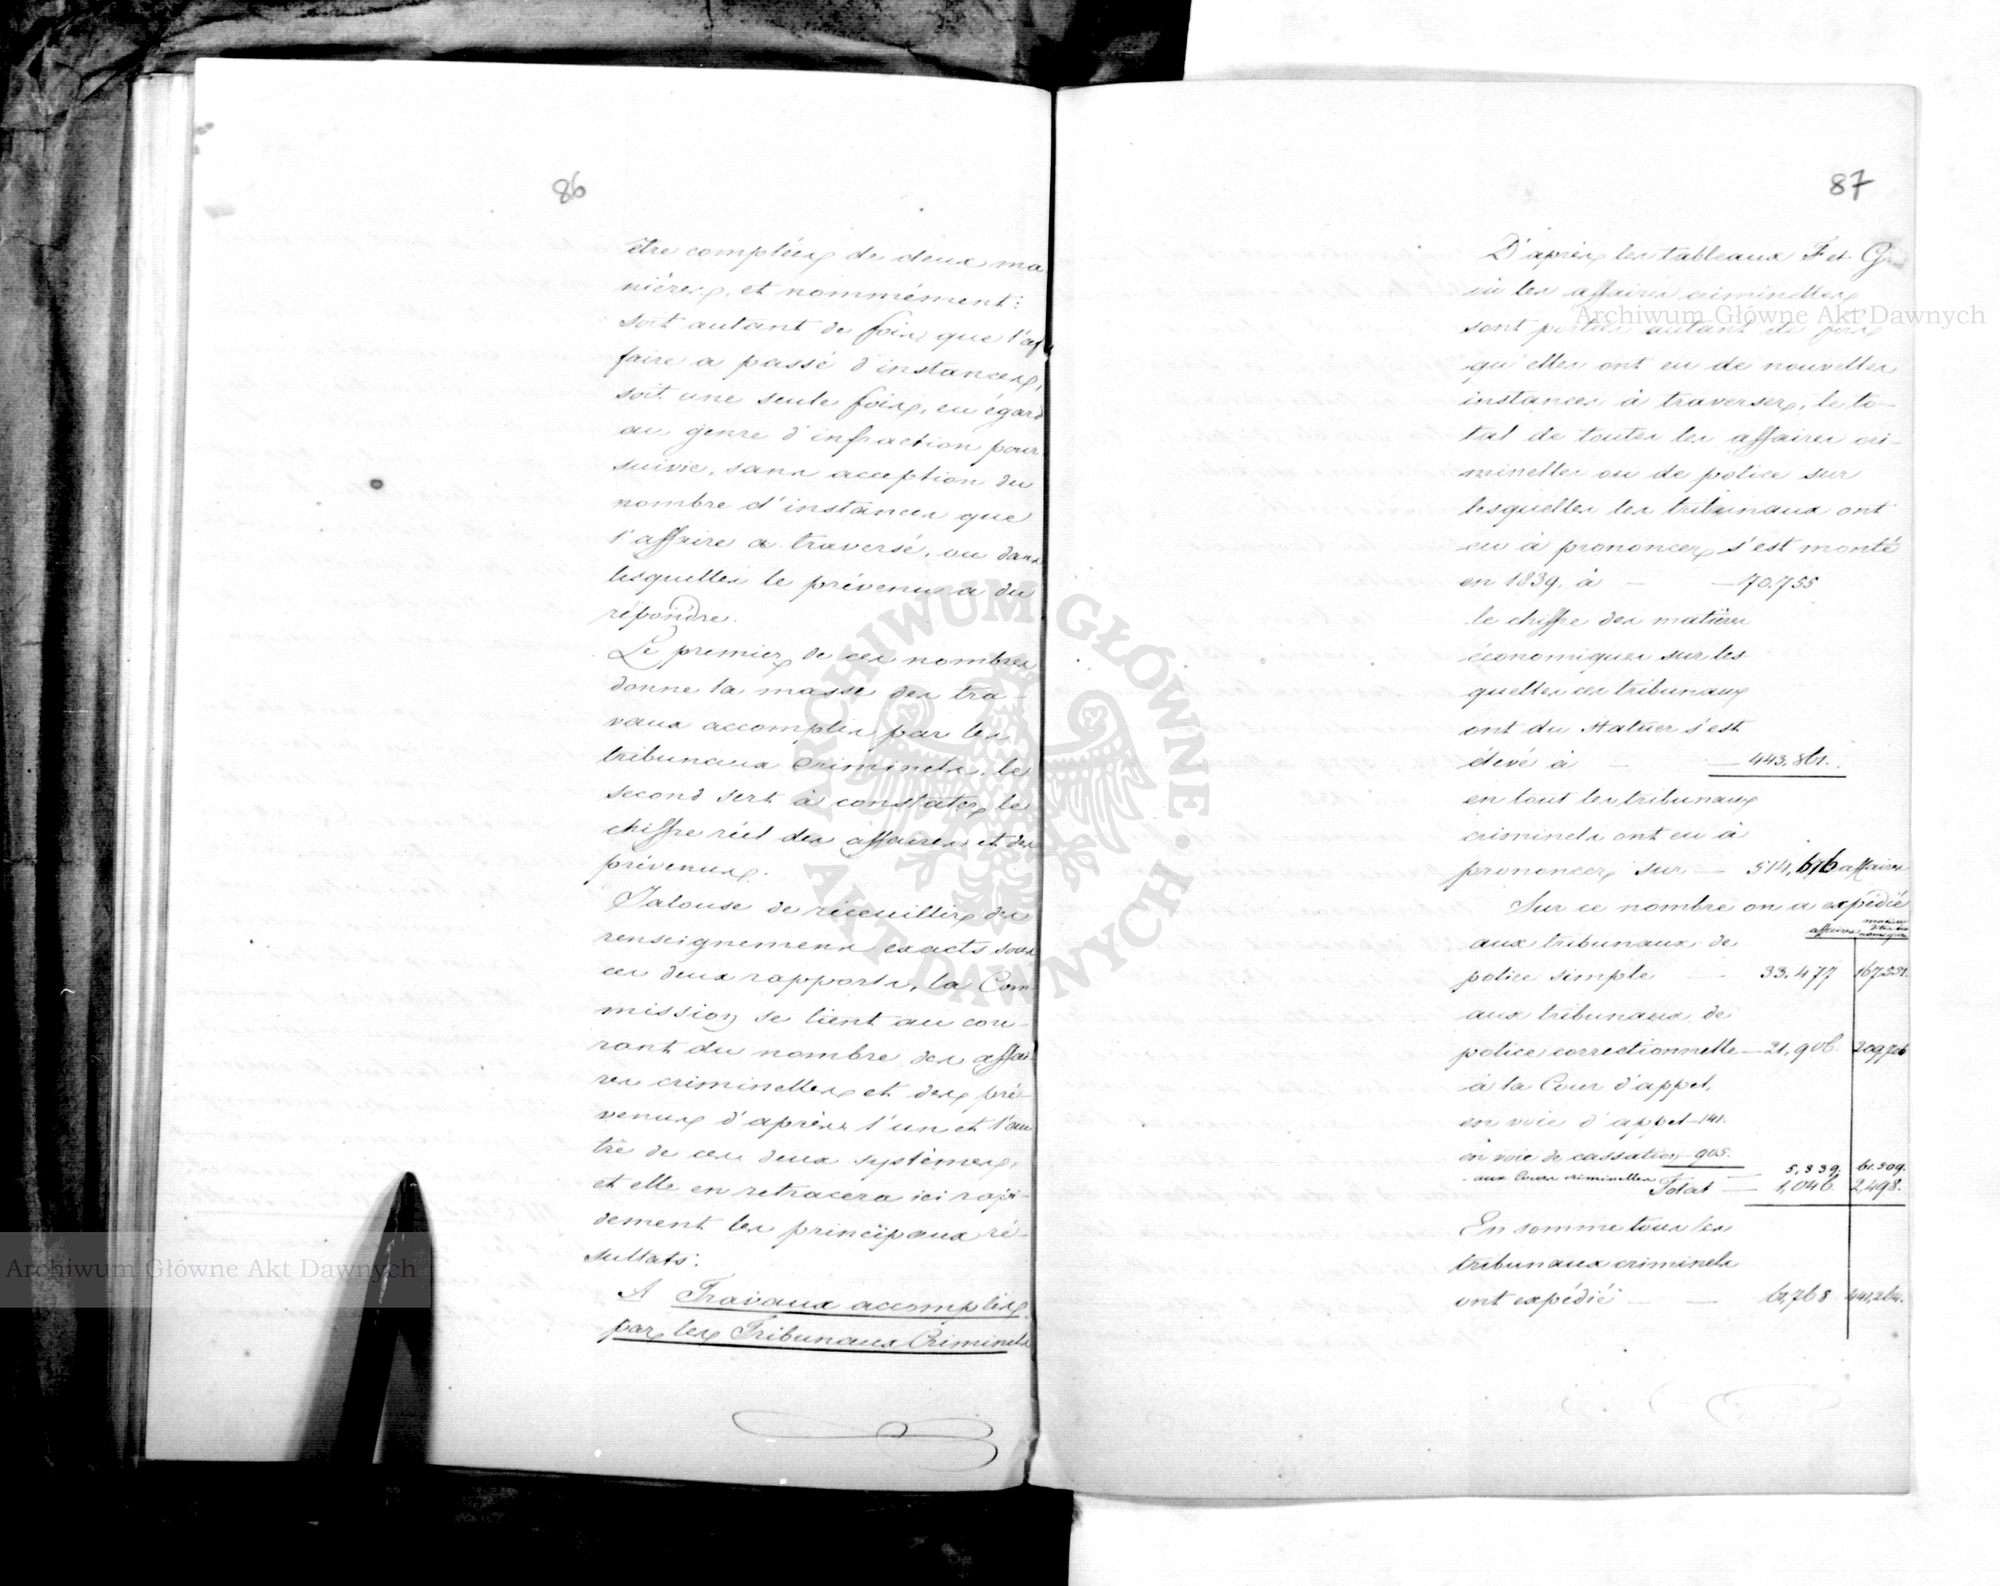 86
être comptées de deux ma-
nières, et nommément:
soit autant de fois que l'af
faire a passé d'instances,
soit une seule fois, eu égard
au genre d'infraction pour
suivie, sans acception du
nombre d'instances que
l'affaire a traversé, ou dans
lesquelles le prévenu a du
répondre.
Le premier de ces nombres
donne la masse des tra-
vaux accomplis par les
tribunaux Criminels, le
second sert à constater le
chiffre réel des affaires et des
prévenus.
Jalouse de receuillir des
renseignemens exacts sous
ces deux rapports, la Com
mission se tient au cou-
rant du nombre des affai
res criminelles et des pré-
venus d'après l'un et l'au
tre de ces deux systèmes,
et elle en retracera ici rapi-
dement les principaux ré-
sultats:
A Travaux accomplis
par les Tribunaux Criminels
87
D'après les tableaux F et G
où les affaires criminelles
sont portées autant de fois
qu'elles ont eu de nouvelles
instances à traverser, le to-
tal de toutes les affaires cri-
minelles ou de police sur
lesquelles les tribunaux ont
eu à prononcer s'est monté
en 1839, à — — 70.755
le chiffre des matières
économiques sur les
quelles ces tribunaux
ont du statuer s'est
élevé à — — 443.861.
en tout les tribunaux
criminels ont eu à
prononcer sur — 514,616 affaires
Sur ce nombre on a expédié
affaires matières
aux tribunaux de
police simple — 33,477 167,551.
aux tribunaux de
police correctionnelle — 21,906. 209,706
à la Cour d'appel,
en voie d'appel — 141.
en voie de cassation — 905.
aux Cours criminelles — 5,339. 61.509.
Total — 1,046. 2,498.
En somme tous les
tribunaux criminels
ont expédié — — 61,768 441,264.
Archiwum Główne Akt Dawnych
Archiwum Główne Akt Dawnych
ARCHIWUM GŁÓWNE AKT DAWNYCH